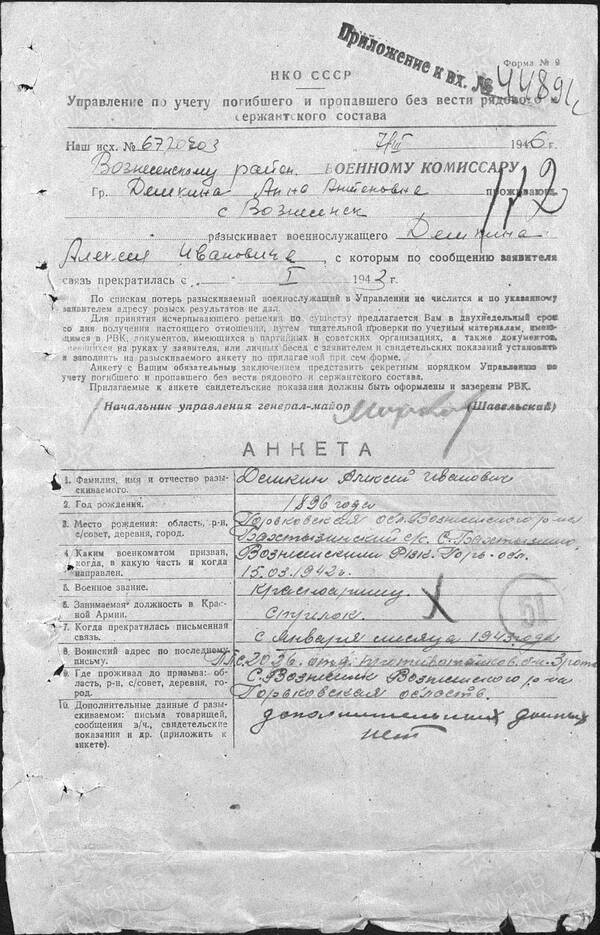 Приложение к вх. № 44891с
Форма № 9
НКО СССР
Управление по учету погибшего и пропавшего без вести рядового и
сержантского состава
Наш исх. № 6720203 1946 г.
Вознесенскому район. ВОЕННОМУ КОМИССАРУ
Гр. Демкина Анна проживающ.
с Вознесенск
разыскивает военнослужащего Демкина
Алексея Ивановича, с которым по сообщению заявителя
связь прекратилась с I 1943 г.
По спискам потерь разыскиваемый военнослужащий в Управлении не числится и по указанному
заявителем адресу розыск результатов не дал.
Для принятия исчерпывающего решения по существу предлагается Вам в двухнедельный срок
со дня получения настоящего отношения, путем тщательной проверки по учетным материалам, имею-
щимся в РВК, документов, имеющихся в партийных и советских организациях, а также документов,
имеющихся на руках у заявителя, или личных бесед с заявителем и свидетельских показаний установить
и заполнить на разыскиваемого анкету по прилагаемой при сем форме.
Анкету с Вашим обязательным заключением представить секретным порядком Управлению по
учету погибшего и пропавшего без вести рядового и сержантского состава.
Прилагаемые к анкете свидетельские показания должны быть оформлены и заверены РВК.
Начальник управления генерал-майор (Шавельский)
АНКЕТА
1. Фамилия, имя и отчество разы-
скиваемого.
Демкин Алексей Иванович
2. Год рождения.
1896 года
3. Место рождения: область, р-н,
с/совет, деревня, город.
Горьковская обл. Вознесенского р-на
с/с. С. Бахтызино
4. Каким военкоматом призван,
когда, в какую часть и когда
направлен.
Вознесенским Рвк. Горьк. обл.
15.03.1942 г.
5. Военное звание.
Красноармеец
6. Занимаемая должность в Крас-
ной Армии.
Стрелок.
51
7. Когда прекратилась письменная
связь.
с Января месяца 1943 года
8. Воинский адрес по последнему
письму.
ППС 2026. отд. 3 рота
9. Где проживал до призыва: об-
ласть, р-н, с/совет, деревня, го-
род.
С. Вознесенск Вознесенского р-на
Горьковская область.
10. Дополнительные данные о разы-
скиваемом: письма товарищей,
сообщения в/ч., свидетельские
показания и др. (приложить к
анкете).
дополнительных данных
нет